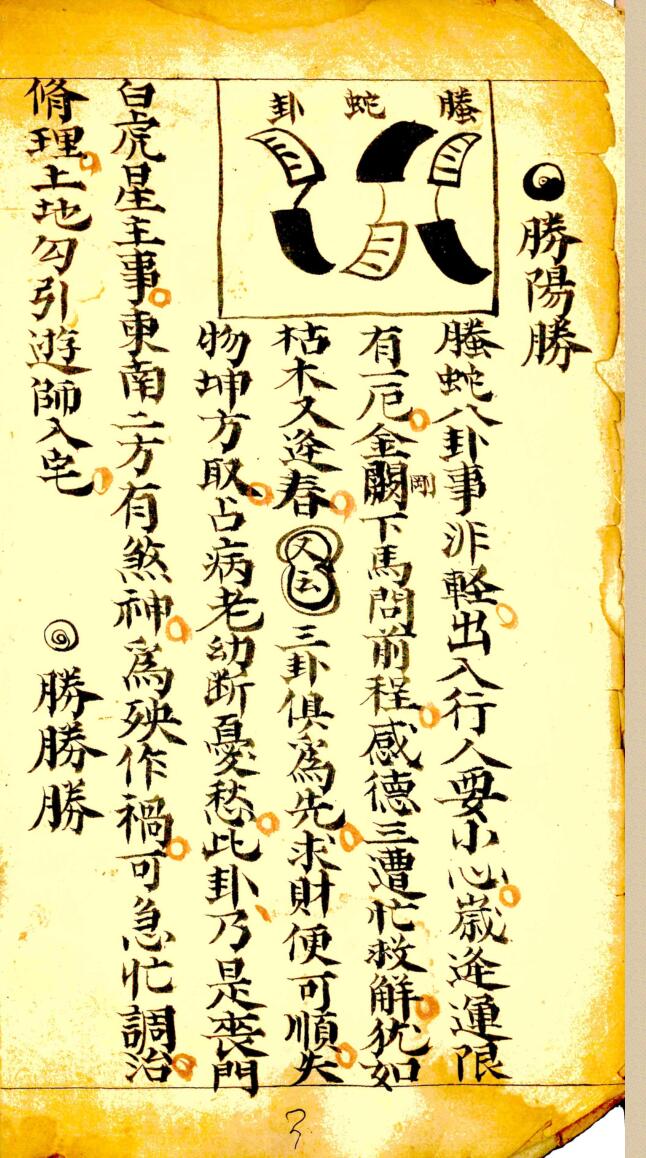 勝陽勝
螣蛇卦
螣蛇八卦事非軽出入行人要小心歳逄運限
有一厄金闕剛下馬問前程感德三遭忙救解犹如
枯木又逄春又云三卦俱爲先求財便可順失
物坤方取占病老幼断憂愁此卦乃是喪門
白虎星主事東南二方有煞神爲殃作禍可急忙調治
脩理土地勾引遊師入宅
勝勝勝